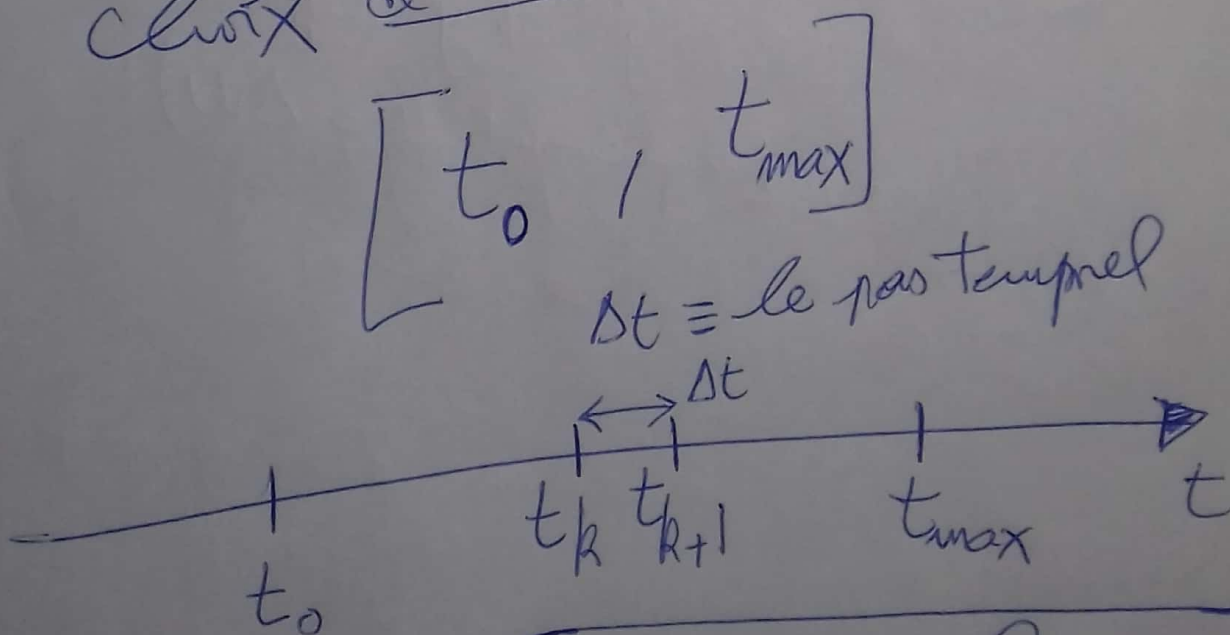 choix
[t₀ , t_max]
Δt ≡ le pas temporel
Δt
t_k t_{k+1} t_max t
t₀